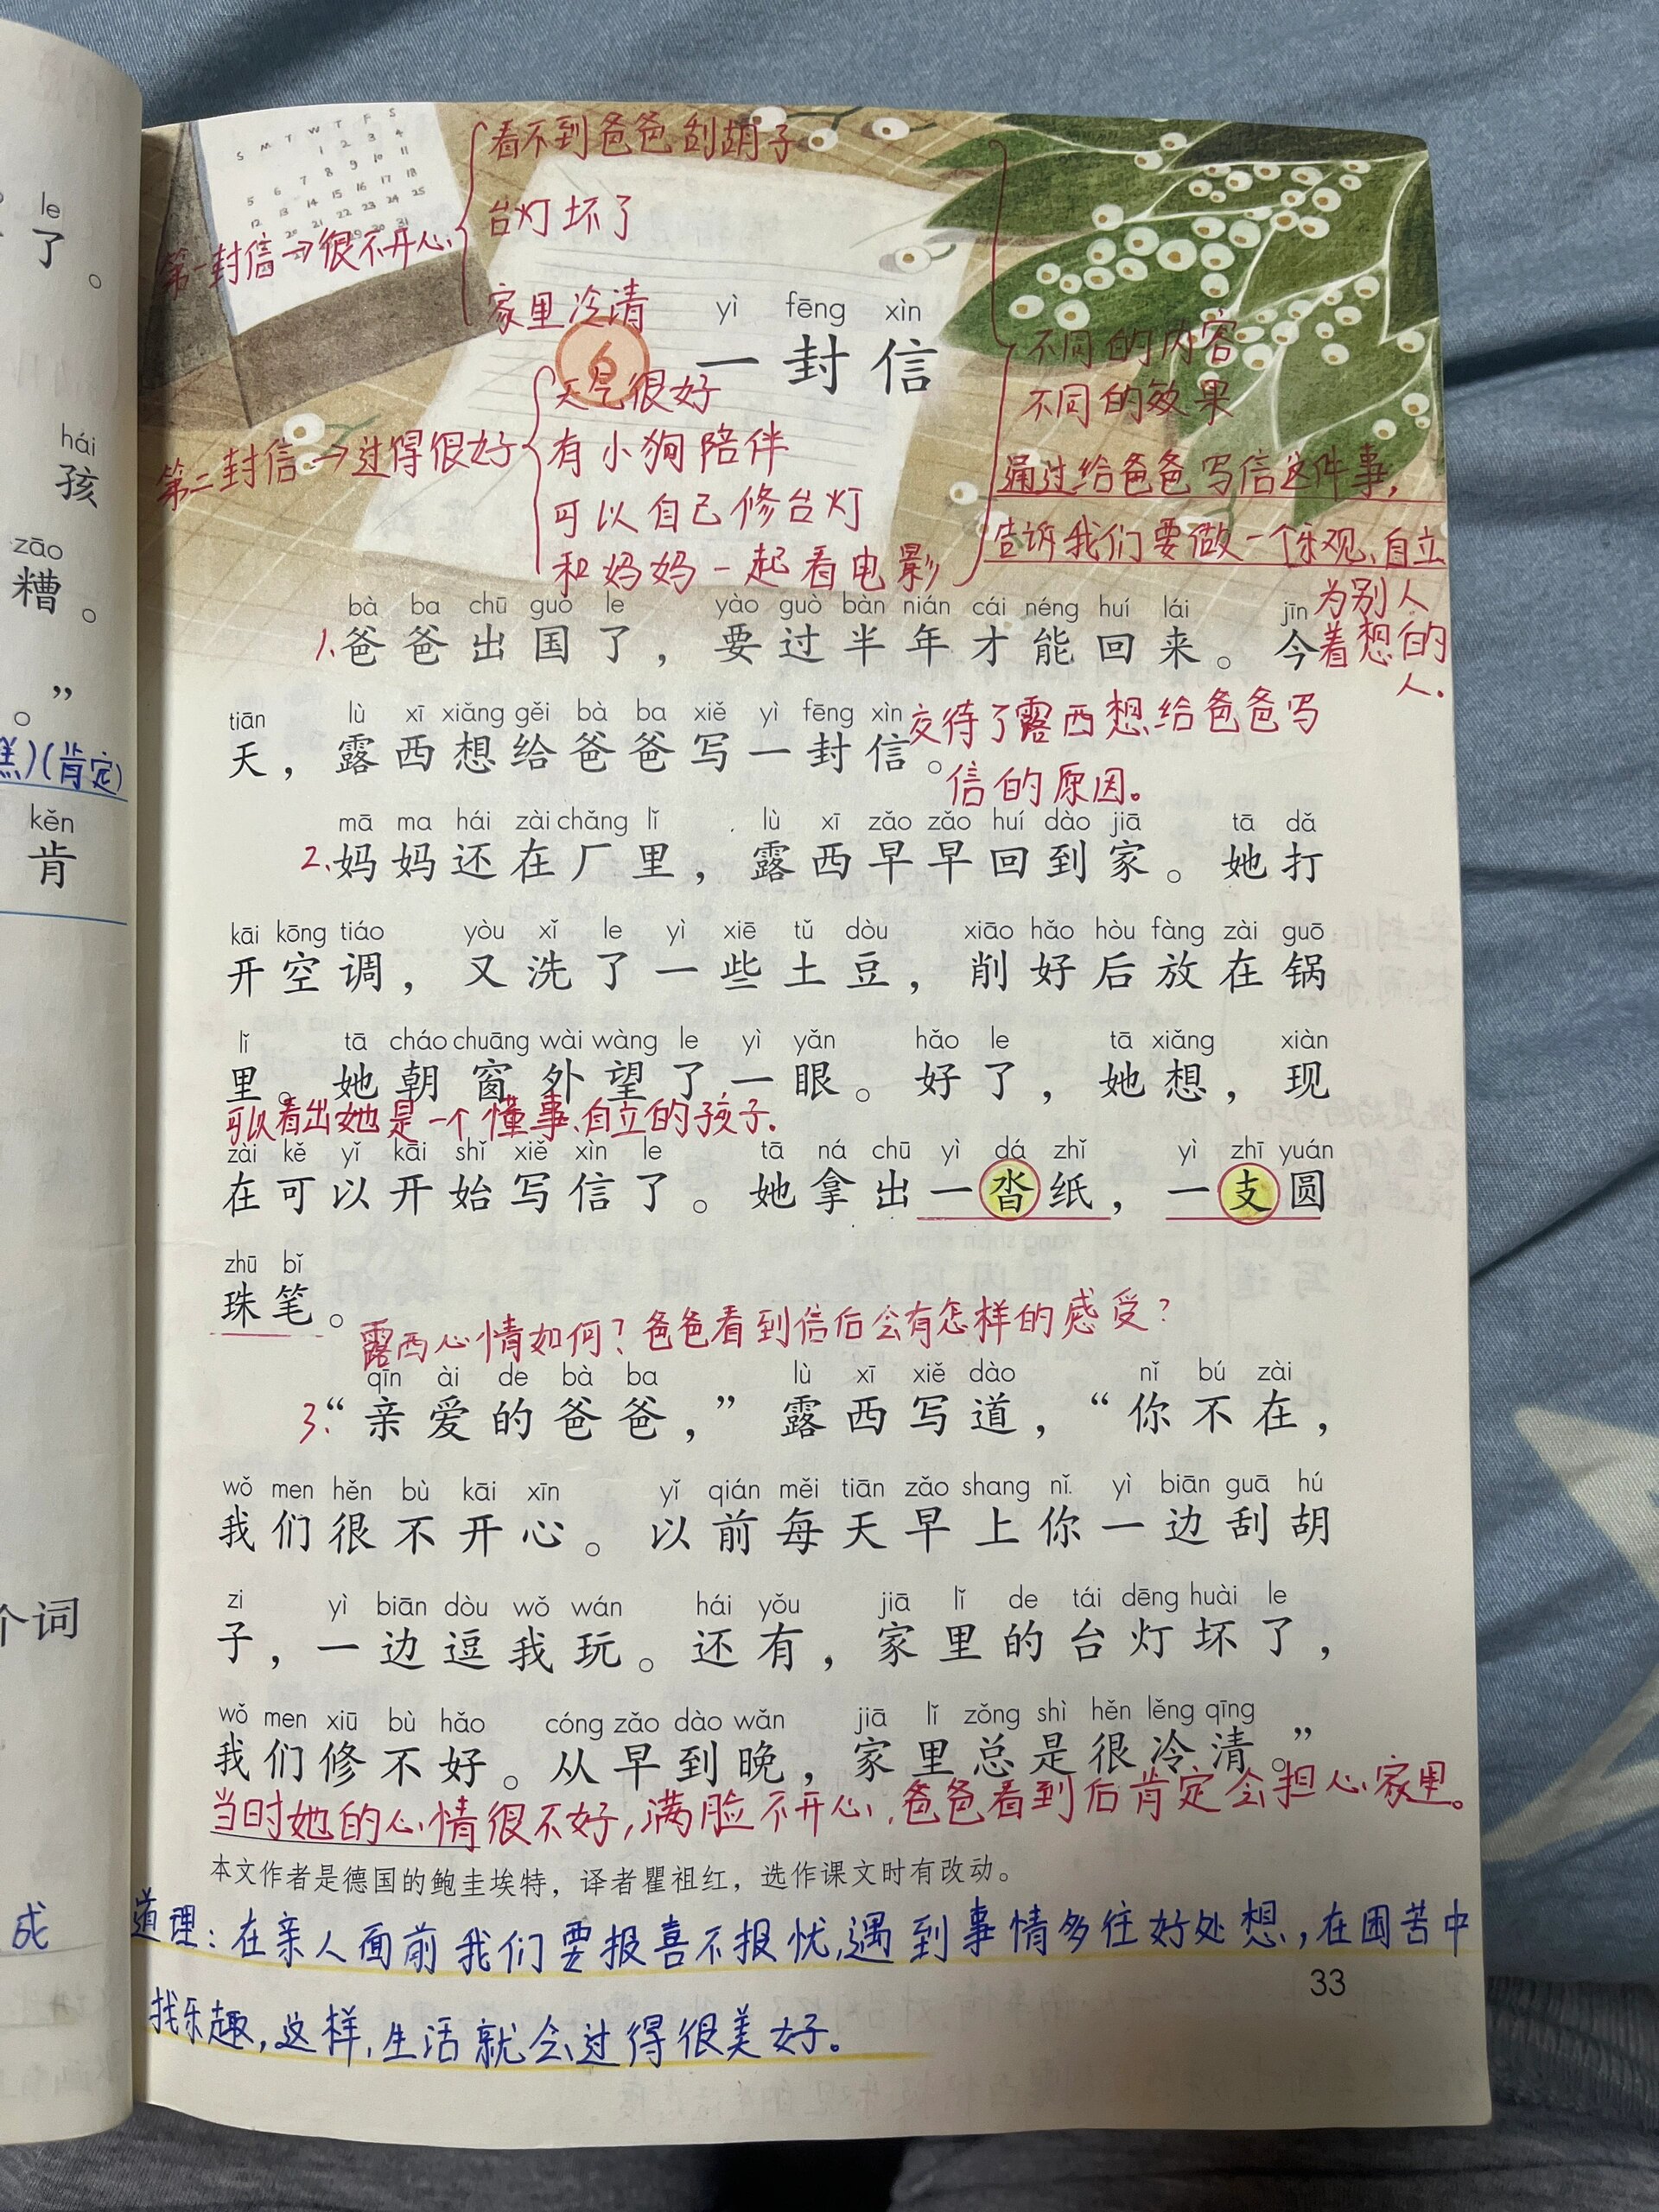 le
了。
hái
孩
zāo
糟。
”
。
糕)(肯定)
kěn
肯
个词
成
S M T W T F S
1 2 3 4
5 6 7 8 9 10 11
12 13 14 15 16 17 18
20 21 22 23 24 25
29 30 31
看不到爸爸刮胡子
台灯坏了
第一封信→很不开心
家里冷清
yì fēng xìn
6 一封信
天气很好
第二封信→过得很好
有小狗陪伴
可以自己修台灯
和妈妈一起看电影
不同的内容
不同的效果
通过给爸爸写信这件事,
告诉我们要做一个乐观、自立
为别人
着想的
人.
bà ba chū guó le yào guò bàn nián cái néng huí lái jīn
1.爸爸出国了，要过半年才能回来。今
tiān lù xī xiǎng gěi bà ba xiě yì fēng xìn
天，露西想给爸爸写一封信。
交待了露西想给爸爸写
信的原因。
mā ma hái zài chǎng lǐ lù xī zǎo zǎo huí dào jiā tā dǎ
2.妈妈还在厂里，露西早早回到家。她打
kāi kōng tiáo yòu xǐ le yì xiē tǔ dòu xiāo hǎo hòu fàng zài guō
开空调，又洗了一些土豆，削好后放在锅
lǐ tā cháo chuāng wài wàng le yì yǎn hǎo le tā xiǎng xiàn
里。她朝窗外望了一眼。好了，她想，现
可以看出她是一个懂事、自立的孩子.
zài kě yǐ kāi shǐ xiě xìn le tā ná chū yì dá zhǐ yì zhī yuán
在可以开始写信了。她拿出一沓纸，一支圆
zhū bǐ
珠笔。
露西心情如何？爸爸看到信后会有怎样的感受？
qīn ài de bà ba lù xī xiě dào nǐ bú zài
3.“亲爱的爸爸，”露西写道，“你不在，
wǒ men hěn bù kāi xīn yǐ qián měi tiān zǎo shang nǐ yì biān guā hú
我们很不开心。以前每天早上你一边刮胡
zi yì biān dòu wǒ wán hái yǒu jiā lǐ de tái dēng huài le
子，一边逗我玩。还有，家里的台灯坏了，
wǒ men xiū bù hǎo cóng zǎo dào wǎn jiā lǐ zǒng shì hěn lěng qīng
我们修不好。从早到晚，家里总是很冷清。”
当时她的心情很不好,满脸不开心,爸爸看到后肯定会担心家里。
本文作者是德国的鲍圭埃特，译者瞿祖红，选作课文时有改动。
道理：在亲人面前我们要报喜不报忧,遇到事情多往好处想,在困苦中
33
找乐趣,这样,生活就会过得很美好。